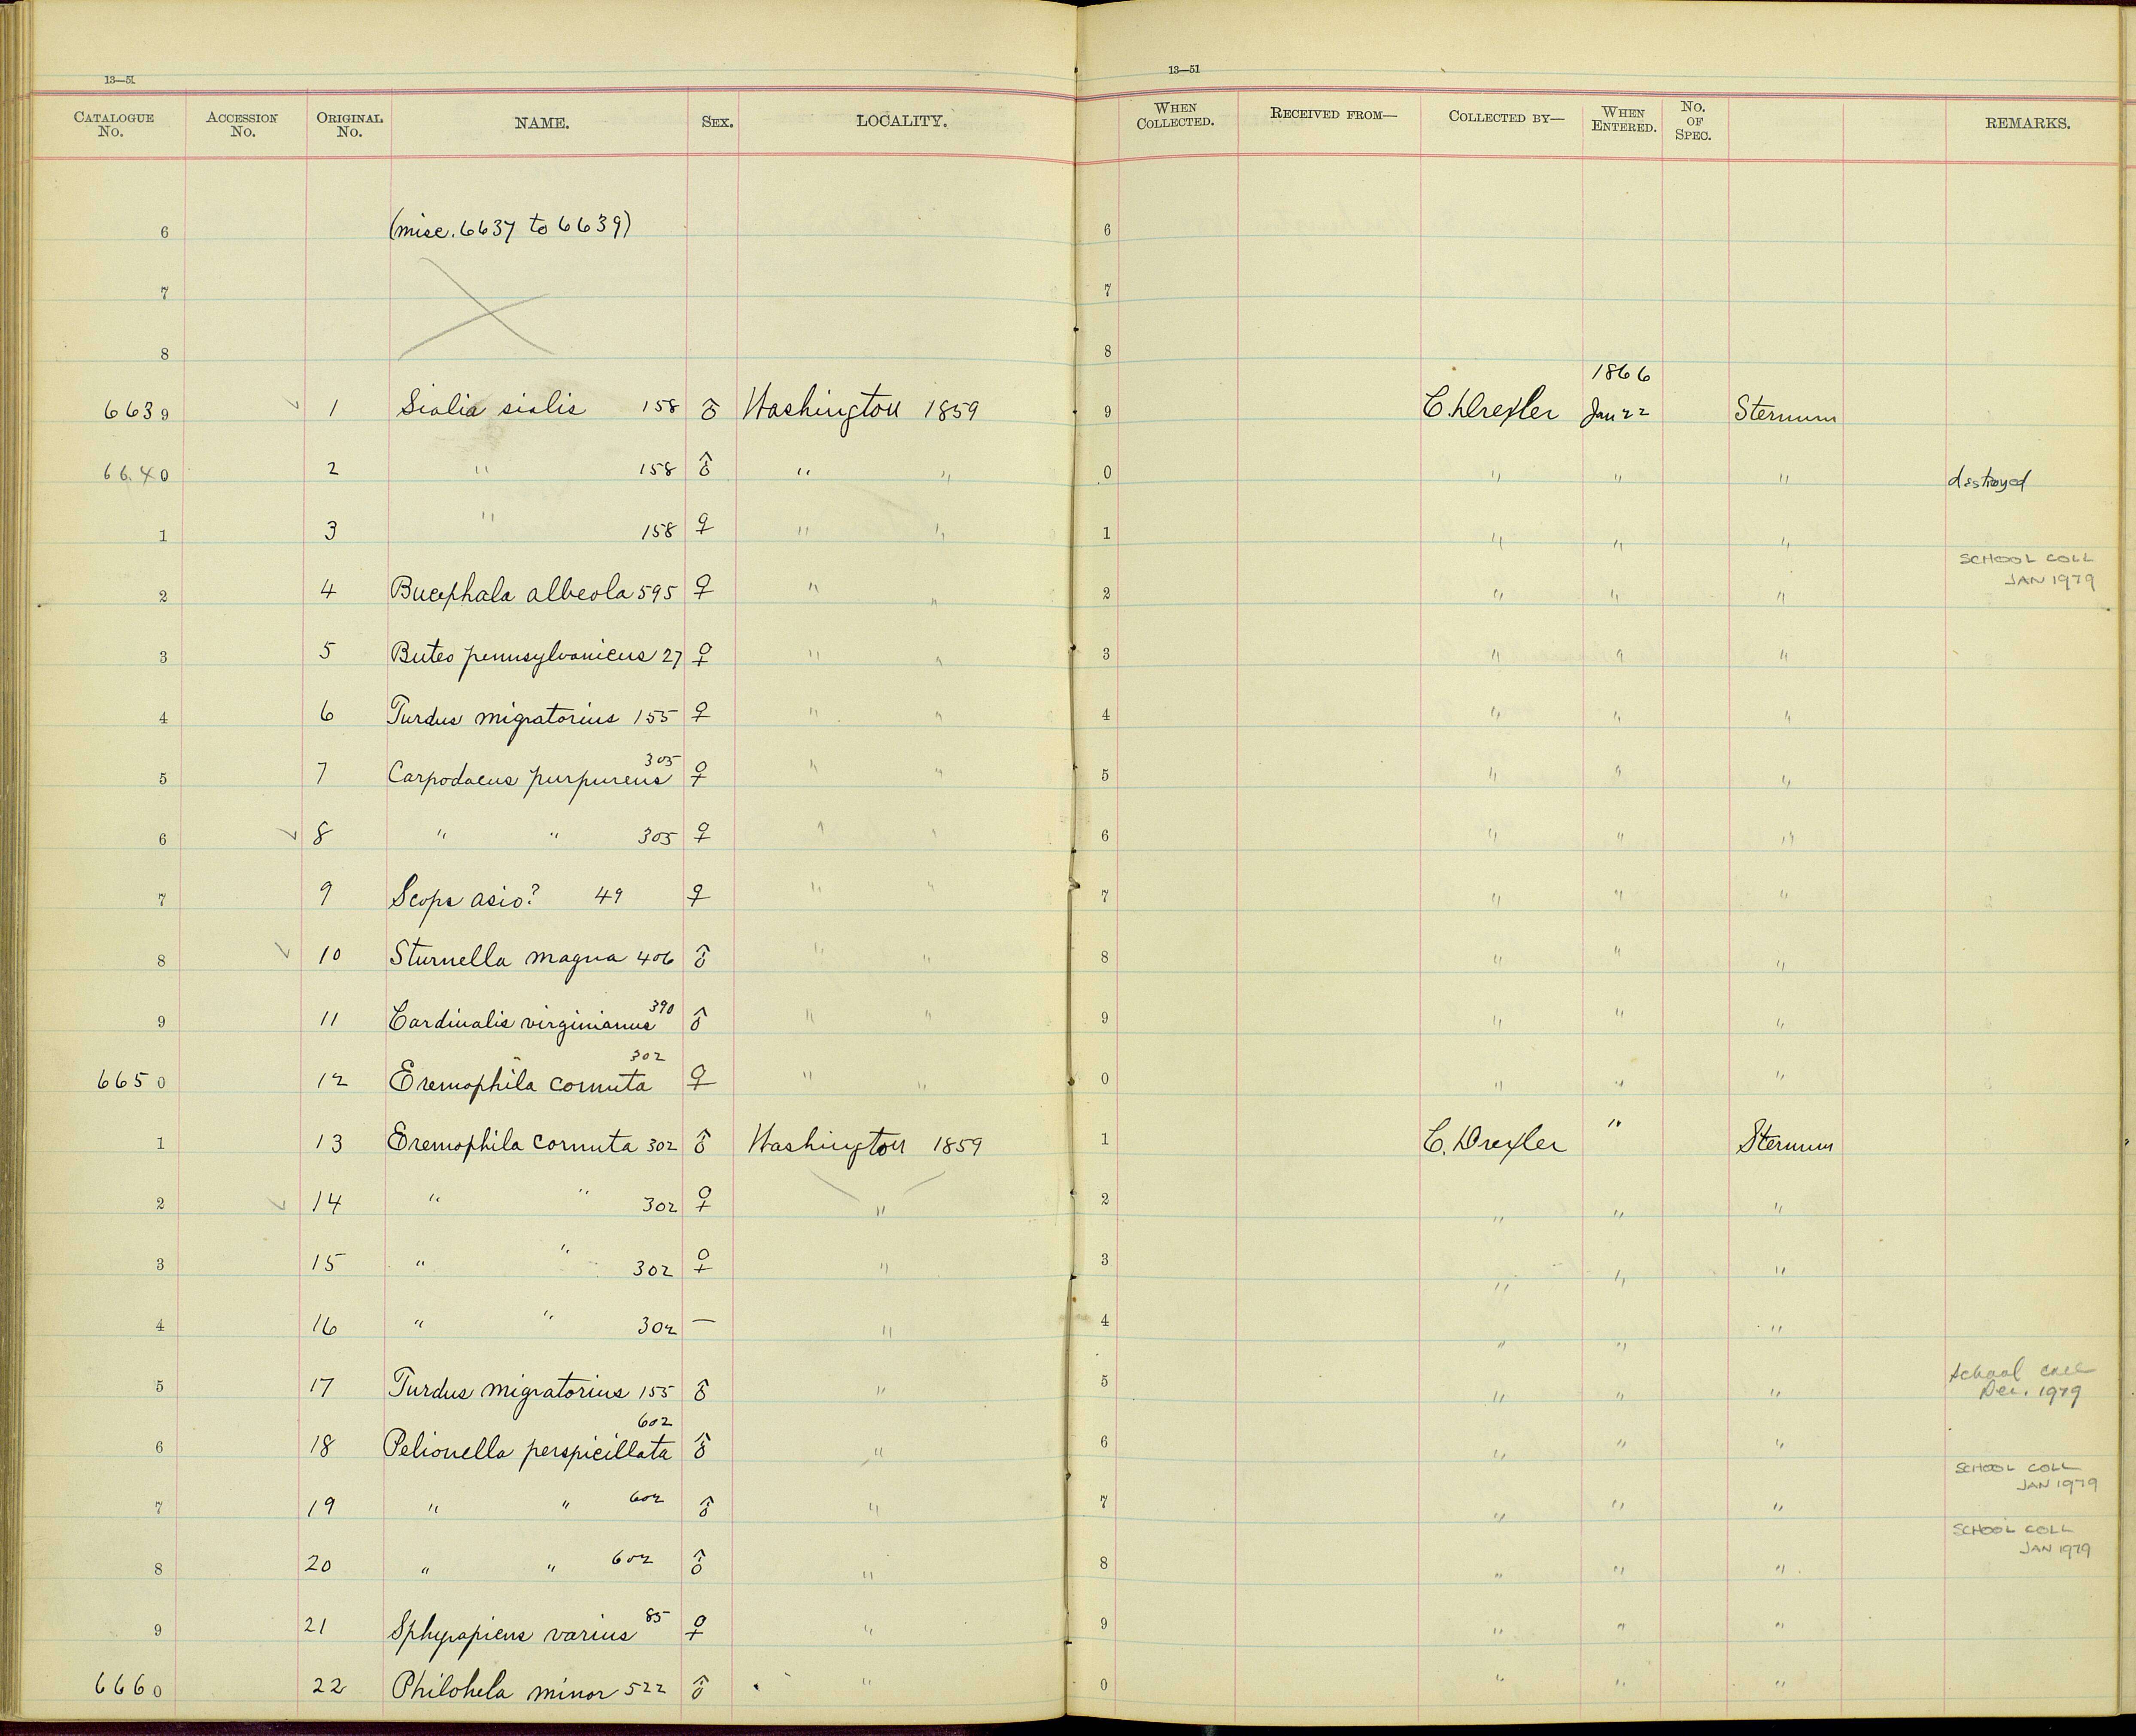 13—51 13—51
CATALOGUE No. ACCESSION No. ORIGINAL No. NAME. SEX. LOCALITY. WHEN COLLECTED. RECEIVED FROM— COLLECTED BY— WHEN ENTERED. No. OF SPEC. REMARKS.
6 (misc. 6637 to 6639) 6
7 7
8 8
1866
6639 1 Sialia sialis 158 ♂ Washington 1859 9 C. Drexler Jan 22 Sternum
6640 2 " 158 ♂ " " 0 " " " destroyed
1 3 " 158 ♀ " " 1 " " "
2 4 Bucephala albeola 595 ♀ " " 2 " " " SCHOOL COLL JAN 1979
3 5 Buteo pennsylvanicus 27 ♀ " " 3 " " "
4 6 Turdus migratorius 155 ♀ " " 4 " " "
5 7 Carpodacus purpureus 305 ♀ " " 5 " " "
6 8 " " 305 ♀ " " 6 " " "
7 9 Scops asio? 49 ♀ " " 7 " " "
8 10 Sturnella magna 406 ♂ " " 8 " " "
9 11 Cardinalis virginianus 390 ♂ " " 9 " " "
6650 12 Eremophila cornuta 302 ♀ " " 0 " " "
1 13 Eremophila cornuta 302 ♂ Washington 1859 1 C. Drexler " Sternum
2 14 " " 302 ♀ " 2 " " "
3 15 " " 302 ♀ " 3 " " "
4 16 " " 302 — " 4 " " "
5 17 Turdus migratorius 155 ♂ " 5 " " " School coll Dec. 1979
6 18 Pelionella perspicillata 602 ♂ " 6 " " "
7 19 " " 602 ♂ " 7 " " " SCHOOL COLL JAN 1979
8 20 " " 602 ♂ " 8 " " " SCHOOL COLL JAN 1979
9 21 Sphyrapicus varius 85 ♀ " 9 " " "
6660 22 Philohela minor 522 ♂ " 0 " " "